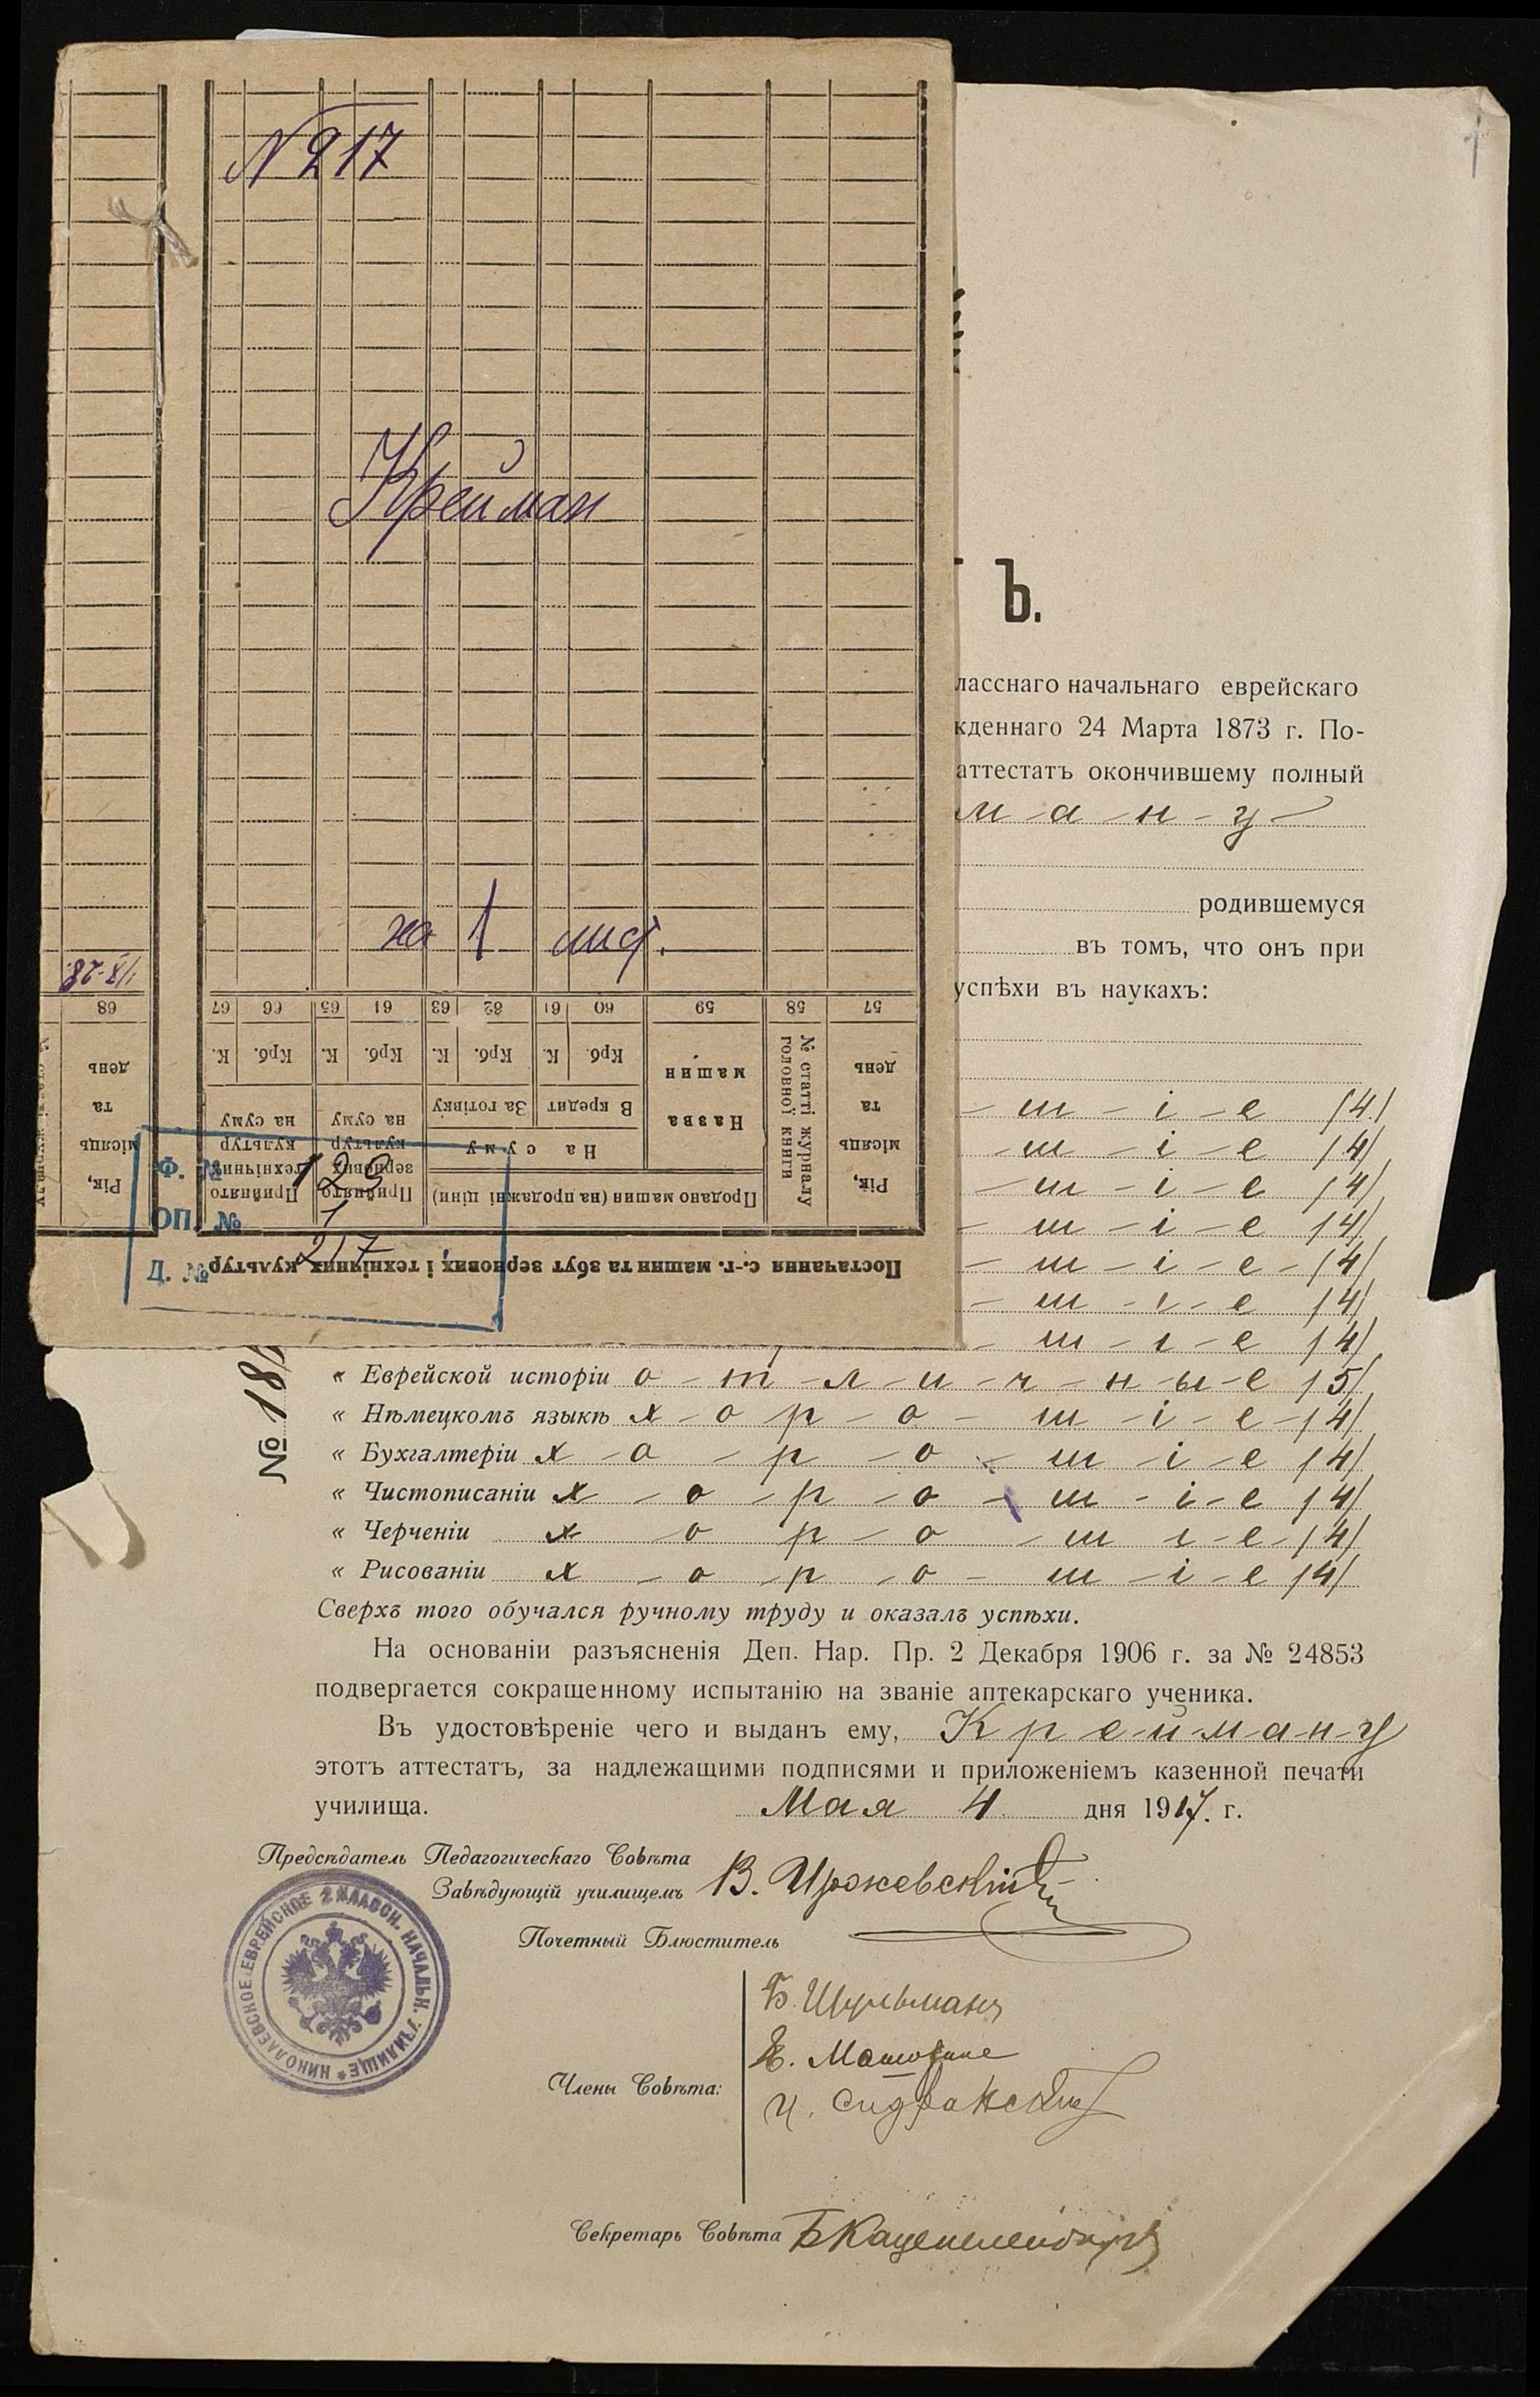 № 217
Крейман
на 1 лист.
1/X-28
68 67 66 65 64 63 62 61 60 59 58 57
Рік, місяць та день
К. Крб. К. Крб. К. Крб. К. Крб.
Назва машин
№ статті журналу головної книги
Рік, місяць та день
Прийнято технічних культур на суму
Прийнято зернових культур на суму
За готівку В кредит
На суму
Продано машин (на продажні ціні)
Постачання с.-г. машин та збут зернових і технічних культур
Ф. № 129
ОП. № 1
Д. № 217
Ъ.
ласснаго начальнаго еврейскаго
жденнаго 24 Марта 1873 г. По-
аттестатъ окончившему полный
м-а-н-у
родившемуся
въ томъ, что онъ при
успѣхи въ наукахъ:
- ш - і - е /4/
- ш - і - е /4/
- ш - і - е /4/
- ш - і - е /4/
- ш - і - е - /4/
- ш - і - е /4/
- ш - і - е /4/
« Еврейской исторіи о-т-л-и-ч-н-ы-е /5/
« Нѣмецкомъ языкѣ х-о-р-о-ш-і-е-/4/
« Бухгалтеріи х-о-р-о-ш-і-е /4/
« Чистописаніи х-о-р-о-ш-і-е /4/
« Черченіи х-о-р-о-ш-і-е-/4/
« Рисованіи х-о-р-о-ш-і-е /4/
№ 18
Сверхъ того обучался ручному труду и оказалъ успѣхи.
На основаніи разъясненія Деп. Нар. Пр. 2 Декабря 1906 г. за № 24853
подвергается сокращенному испытанію на званіе аптекарскаго ученика.
Въ удостовѣреніе чего и выданъ ему, К р-е-й-м-а-н-у
этотъ аттестатъ, за надлежащими подписями и приложеніемъ казенной печати
училища. Мая 4 дня 1917. г.
Предсѣдатель Педагогическаго Совѣта
Завѣдующій училищемъ В.
Почетный Блюститель
Б. Шульманъ
Члены Совѣта:
Секретарь Совѣта
НИКОЛАЕВСКОЕ ЕВРЕЙСКОЕ 2 КЛАССН. НАЧАЛЬН. УЧИЛИЩЕ *